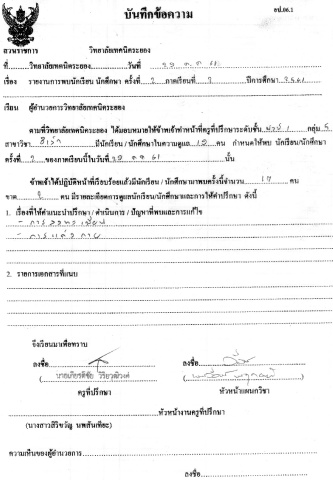 บันทึกข้อความ
อป.06.1
ส่วนราชการ วิทยาลัยเทคนิคระยอง
ที่ วิทยาลัยเทคนิคระยอง วันที่ 22 ต.ค. 61
เรื่อง รายงานการพบนักเรียน นักศึกษา ครั้งที่ 2 ภาคเรียนที่ 2 ปีการศึกษา 2561
เรียน ผู้อำนวยการวิทยาลัยเทคนิคระยอง
ตามที่วิทยาลัยเทคนิคระยอง ได้มอบหมายให้ข้าพเจ้าทำหน้าที่ครูที่ปรึกษาระดับชั้น กลุ่ม 5
สาขาวิชา มีนักเรียน / นักศึกษาในความดูแล คน กำหนดให้พบ นักเรียน/นักศึกษา
ครั้งที่ 2 ของภาคเรียนนี้ในวันที่ 22 ต.ค. 61 นั้น
ข้าพเจ้าได้ปฏิบัติหน้าที่เรียบร้อยแล้วมีนักเรียน / นักศึกษามาพบครั้งนี้จำนวน 17 คน
ขาด คน มีรายละเอียดการดูแลนักเรียน/นักศึกษาและการให้คำปรึกษา ดังนี้
1. เรื่องที่ให้คำแนะนำปรึกษา / ดำเนินการ / ปัญหาที่พบและการแก้ไข
- การลงทะเบียน
- การแต่งกาย
2. รายการเอกสารที่แนบ
จึงเรียนมาเพื่อทราบ
ลงชื่อ ลงชื่อ
(นายเกียรติชัย วิริยวุฒิวงศ์)
ครูที่ปรึกษา หัวหน้าแผนกวิชา
หัวหน้างานครูที่ปรึกษา
(นางสาวสิริขวัญ นพสันเทียะ)
ความเห็นของผู้อำนวยการ
ลงชื่อ